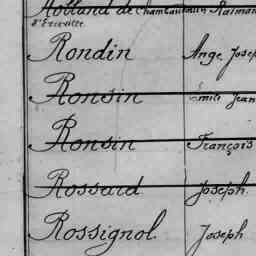 Holland de Chambaudoin Raiman
d'Erceville
Rondin Ange Josep
Ronsin Émile Jean
Ronsin François
Rossard Joseph
Rossignol Joseph